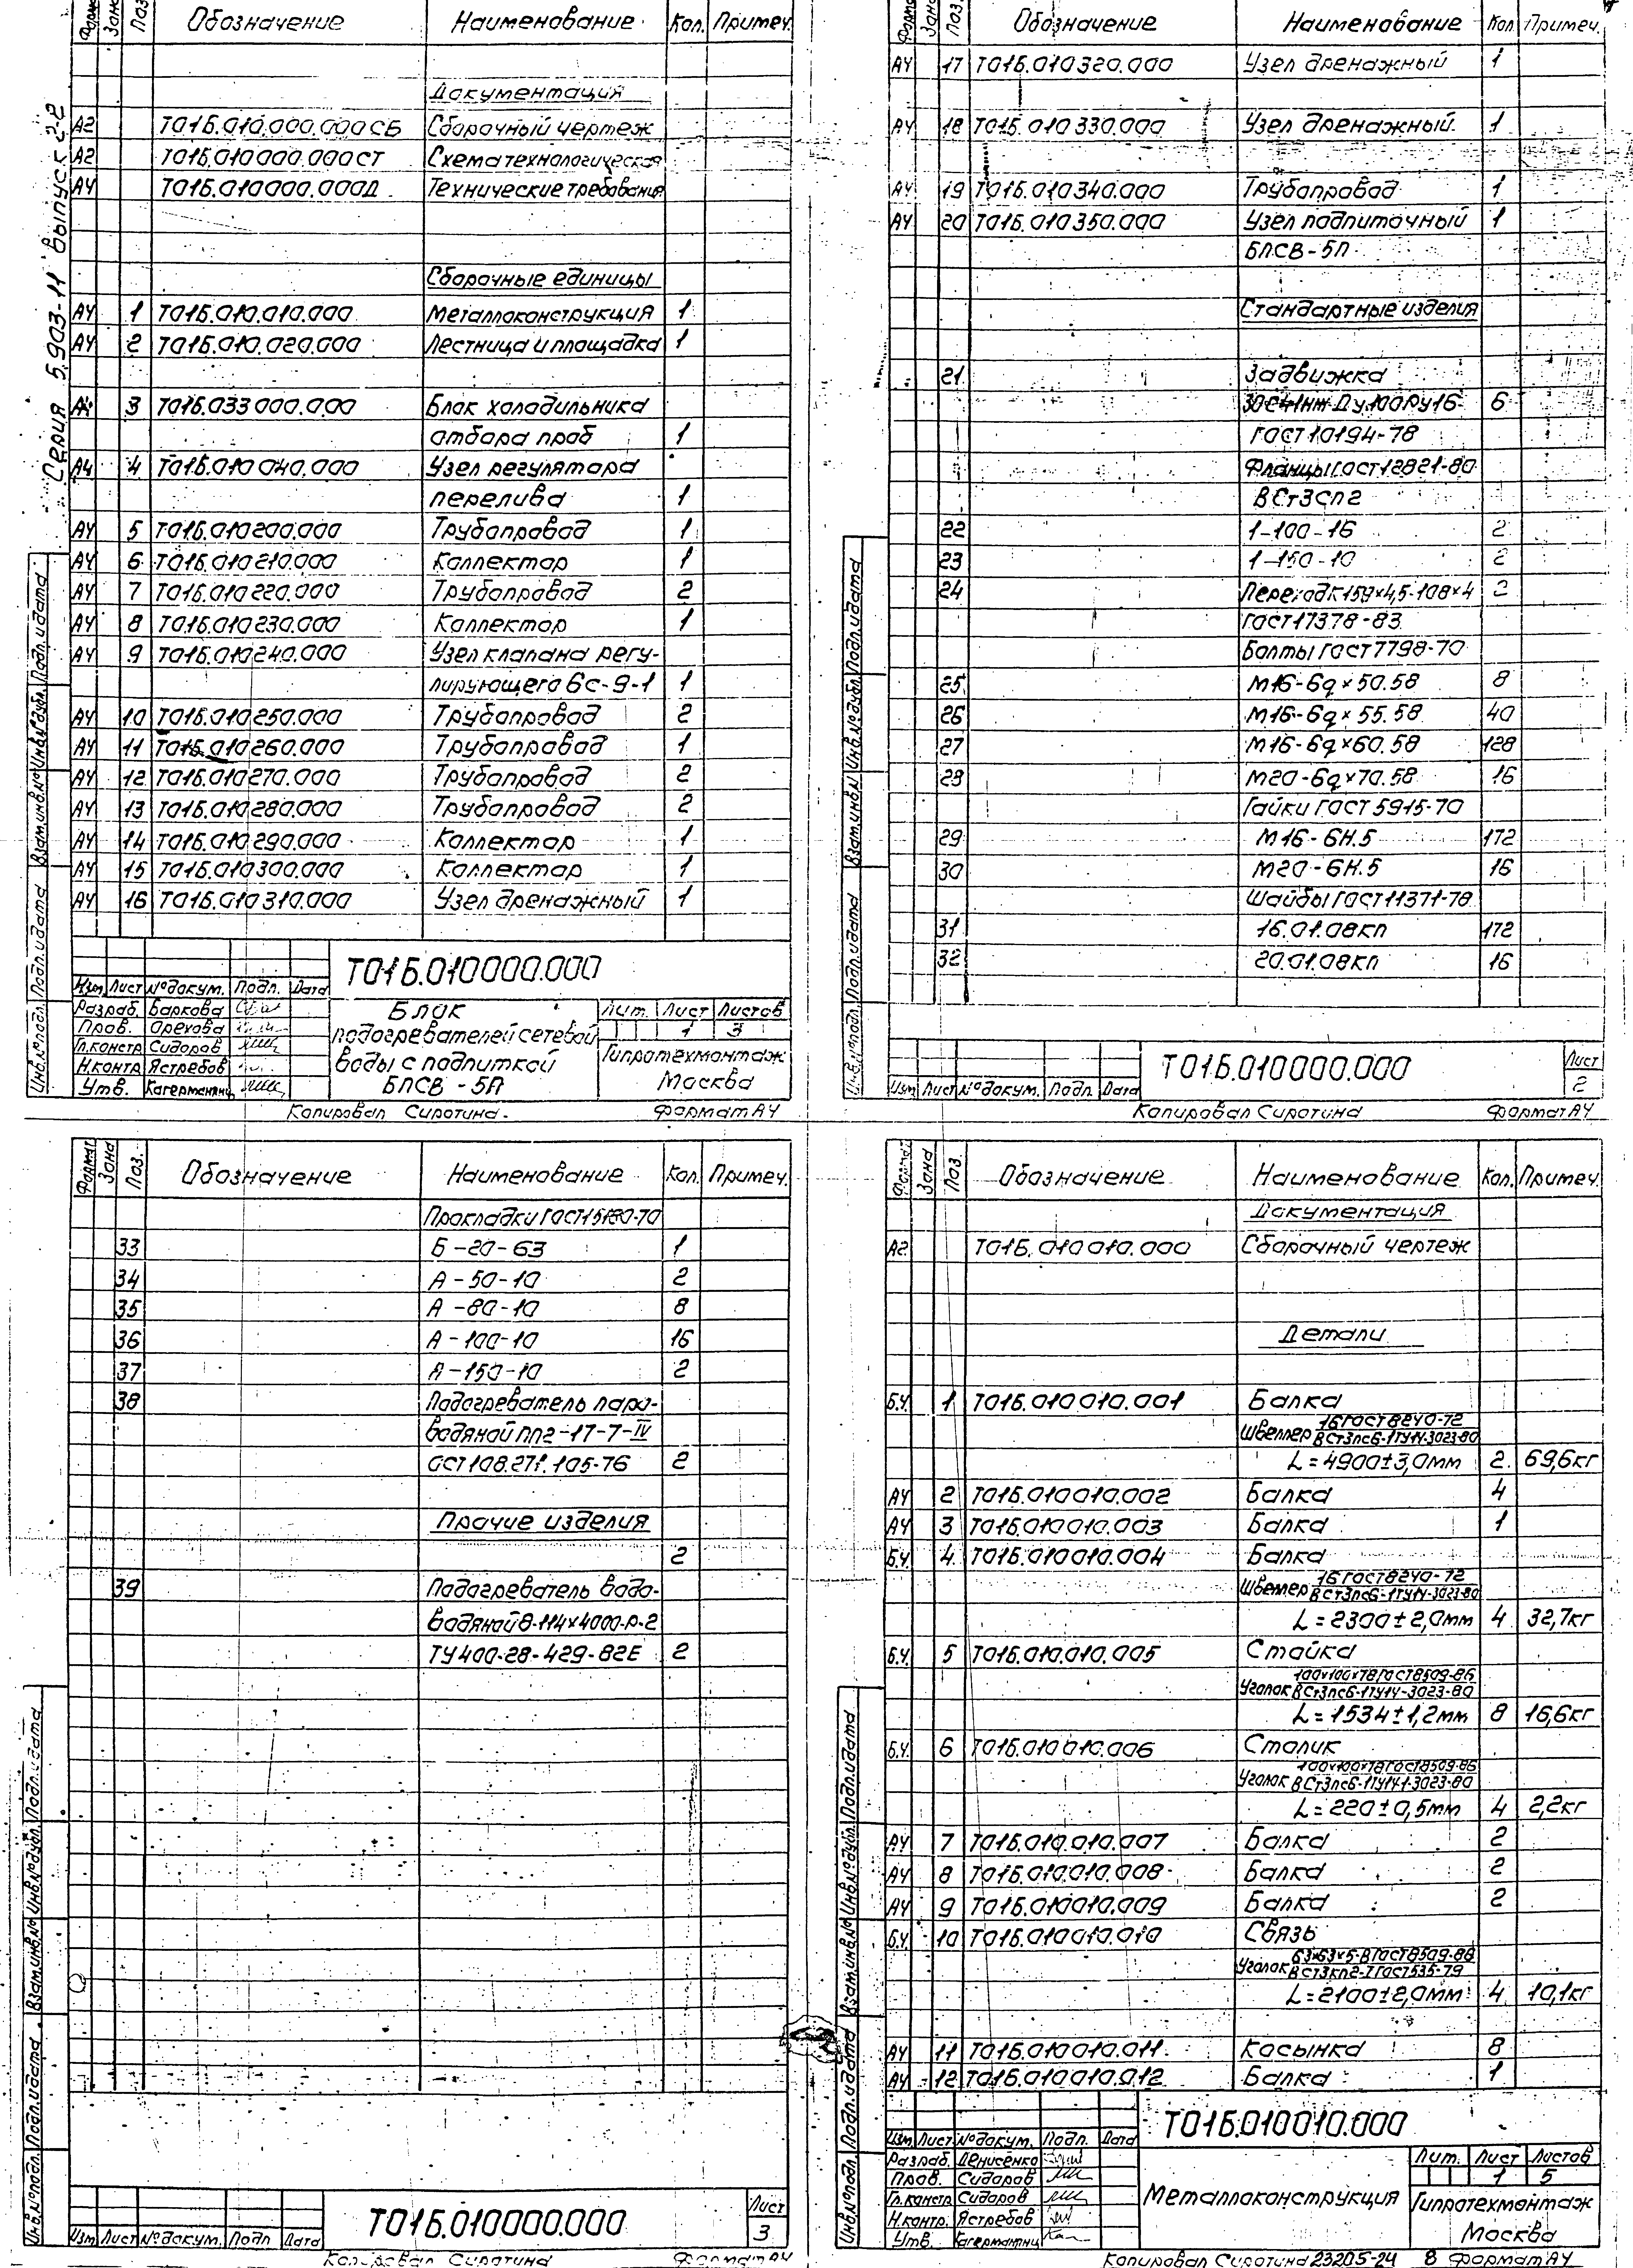 Серия 5.903-11 Выпуск 2-2
Форма Зона Поз. Обозначение Наименование Кол. Примеч.
Документация
А2 Т01Б.010.000.000СБ Сборочный чертеж
А2 Т01Б.010000.000СТ Схема технологическая
А4 Т01Б.010000.000Д Технические требования
Сборочные единицы
А4 1 Т01Б.010.010.000 Металлоконструкция 1
А4 2 Т01Б.010.020.000 Лестница и площадка 1
А4 3 Т01Б.033000.000 Блок холодильника
отбора проб 1
А4 4 Т01Б.010040.000 Узел регулятора
перелива 1
А4 5 Т01Б.010200.000 Трубопровод 1
А4 6 Т01Б.010210.000 Коллектор 1
А4 7 Т01Б.010220.000 Трубопровод 2
А4 8 Т01Б.010230.000 Коллектор 1
А4 9 Т01Б.010240.000 Узел клапана регу-
лирующего 6с-9-1 1
А4 10 Т01Б.010250.000 Трубопровод 2
А4 11 Т01Б.010260.000 Трубопровод 1
А4 12 Т01Б.010270.000 Трубопровод 2
А4 13 Т01Б.010280.000 Трубопровод 2
А4 14 Т01Б.010290.000 Коллектор 1
А4 15 Т01Б.010300.000 Коллектор 1
А4 16 Т01Б.010310.000 Узел дренажный 1
Инв.№ подл. Подп. и дата Взам.инв.№ Инв.№ дубл. Подп. и дата
Т01Б.010000.000
Изм. Лист № докум. Подп. Дата
Разраб. Баркова
Пров. Орехова
Гл.констр Сидоров
Н.контр Ястребов
Утв. Кагерманянц
Блок
подогревателей сетевой
воды с подпиткой
БПСВ-5П
Лит. Лист Листов
1 3
Гипротехмонтаж
Москва
Копировал Сиротина Формат А4
Форма Зона Поз. Обозначение Наименование Кол. Примеч.
А4 17 Т01Б.010320.000 Узел дренажный 1
А4 18 Т01Б.010330.000 Узел дренажный 1
А4 19 Т01Б.010340.000 Трубопровод 1
А4 20 Т01Б.010350.000 Узел подпиточный 1
БПСВ-5П
Стандартные изделия
21 Задвижка
30с41нж Ду100Ру16 6
ГОСТ10194-78
Фланцы ГОСТ12821-80
ВСт3сп2
22 1-100-16 2
23 1-150-10 2
24 Переход К159×4,5-108×4 2
ГОСТ17378-83
Болты ГОСТ7798-70
25 М16-6g×50.58 8
26 М16-6g×55.58 40
27 М16-6g×60.58 128
28 М20-6g×70.58 16
Гайки ГОСТ5915-70
29 М16-6Н.5 172
30 М20-6Н.5 16
Шайбы ГОСТ11371-78
31 16.01.08кп 172
32 20.01.08кп 16
Инв.№ подл. Подп. и дата Взам.инв.№ Инв.№ дубл. Подп. и дата
Т01Б.010000.000
Лист
2
Изм Лист № докум. Подп. Дата
Копировал Сиротина Формат А4
Формат Зона Поз. Обозначение Наименование Кол. Примеч.
Прокладки ГОСТ15180-70
33 Б-20-63 1
34 А-50-10 2
35 А-80-10 8
36 А-100-10 16
37 А-150-10 2
38 Подогреватель паро-
водяной ПП2-17-7-IV
ОСТ108.271.105-76 2
Прочие изделия
2
39 Подогреватель водо-
водяной 8-114×4000-Р-2
ТУ400-28-429-82Е 2
Инв.№ подл. Подп. и дата Взам.инв.№ Инв.№ дубл. Подп. и дата
Т01Б.010000.000
Лист
3
Изм Лист № докум. Подп Дата
Копировал Сиротина Формат А4
Формат Зона Поз. Обозначение Наименование Кол. Примеч.
Документация
А2 Т01Б.010010.000 Сборочный чертеж
Детали
Б.Ч. 1 Т01Б.010010.001 Балка
Швеллер 16ГОСТ8240-72
ВСт3пс6-1ТУ14-3023-80
L=4900±3,0мм 2 69,6кг
А4 2 Т01Б.010010.002 Балка 4
А4 3 Т01Б.010010.003 Балка 1
Б.Ч. 4 Т01Б.010010.004 Балка
Швеллер 16ГОСТ8240-72
ВСт3пс6-1ТУ14-3023-80
L=2300±2,0мм 4 32,7кг
Б.Ч. 5 Т01Б.010.010.005 Стойка
Уголок 100×100×7ВГОСТ8509-86
ВСт3пс6-1ТУ14-3023-80
L=1534±1,2мм 8 16,6кг
Б.Ч. 6 Т01Б.010010.006 Столик
Уголок 100×100×7ВГОСТ8509-86
ВСт3пс6-1ТУ14-1-3023-80
L=220±0,5мм 4 2,2кг
А4 7 Т01Б.010.010.007 Балка 2
А4 8 Т01Б.010010.008 Балка 2
А4 9 Т01Б.010010.009 Балка 2
Б.Ч. 10 Т01Б.010010.010 Связь
Уголок 63×63×5-ВГОСТ8509-86
ВСт3кп2-1ГОСТ535-79
L=2100±2,0мм 4 10,1кг
А4 11 Т01Б.010010.011 Косынка 8
А4 12 Т01Б.010010.012 Балка 1
Инв.№ подл. Подп. и дата Взам.инв.№ Инв.№ дубл. Подп. и дата
Т01Б.010010.000
Изм. Лист № докум. Подп. Дата
Разраб. Денисенко
Пров. Сидоров
Гл.констр Сидоров
Н.контр. Ястребов
Утв. Кагерманянц
Металлоконструкция
Лит. Лист Листов
1 5
Гипротехмонтаж
Москва
Копировал Сиротина 23205-24 8 Формат А4